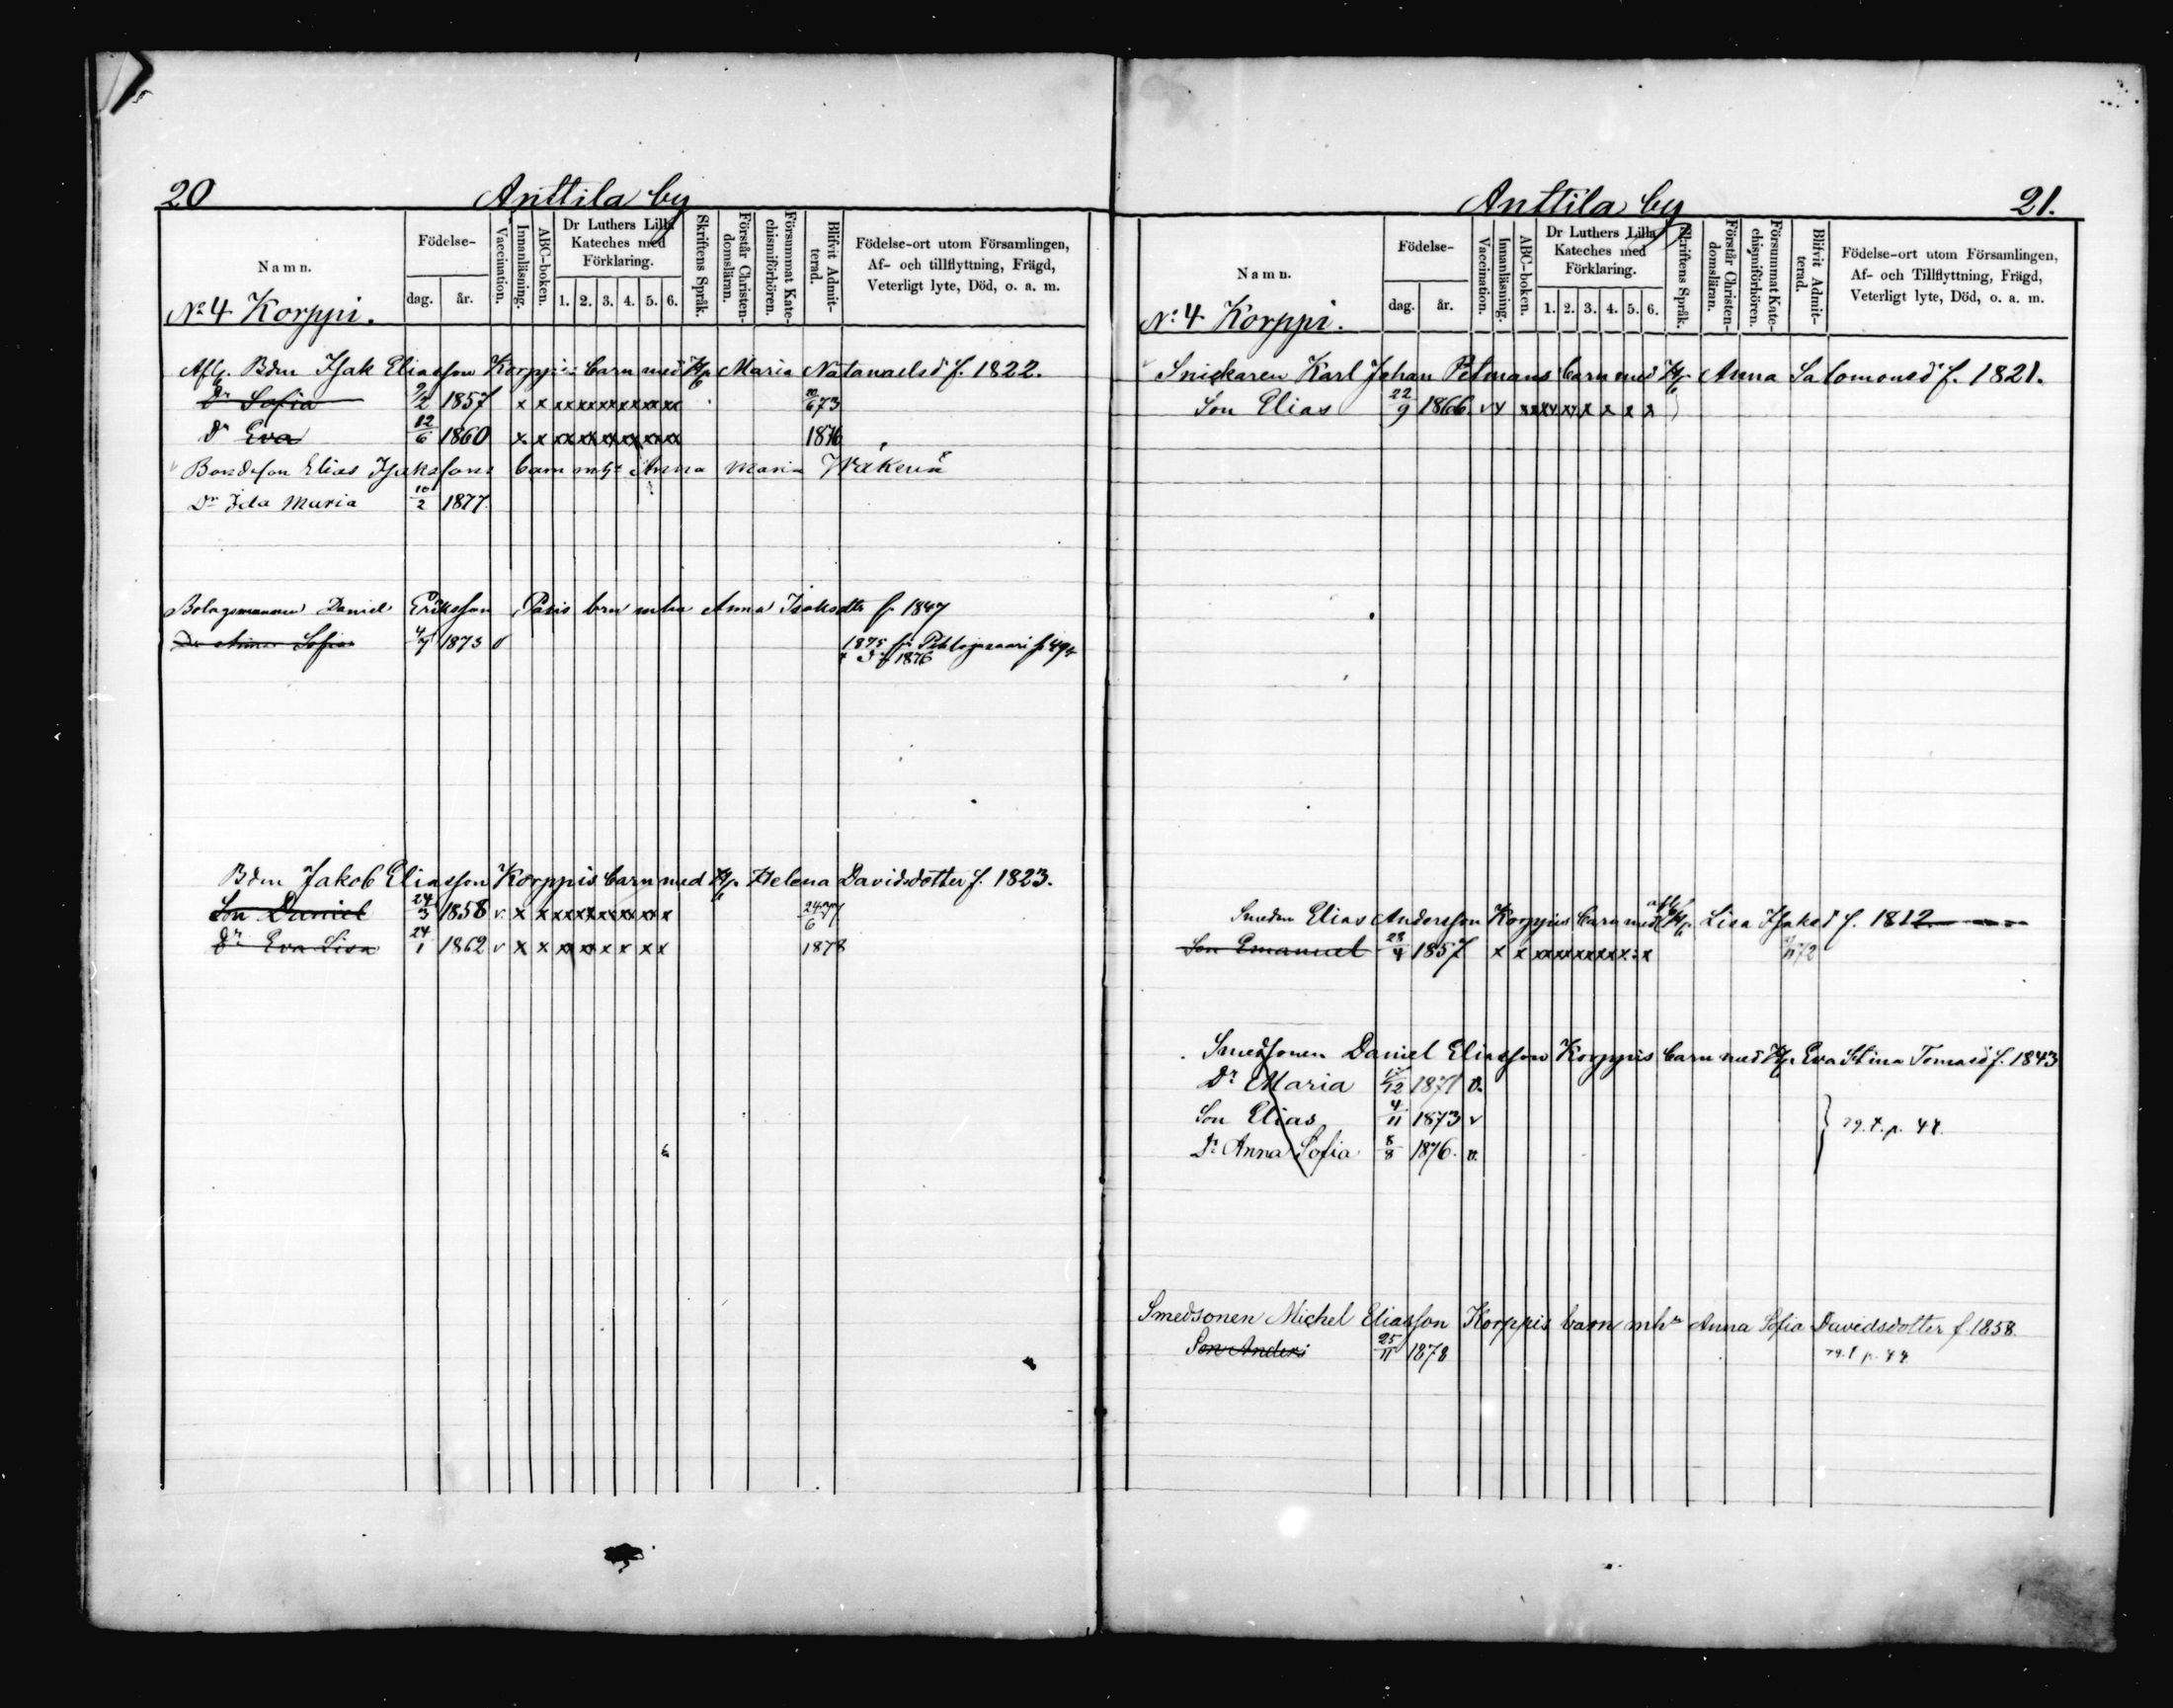 20 Anttila by
Namn. Födelse- dag. år. Vaccination. Innanläsning. ABC-boken. Dr Luthers Lilla Kateches med Förklaring. 1. 2. 3. 4. 5. 6. Skriftens Språk. Förstår Christendomsläran. Försummat Katechismiförhören. Blifvit Admitterad. Födelse-ort utom Församlingen, Af- och tillflyttning, Frägd, Veterligt lyte, Död, o. a. m.
No 4 Korppi.
Afl. Bdn Isak Eliasson Korppis barn med Hu Maria Natanaelsd f. 1822.
Dr Sofia 9/2 1857 x x xx xx xx xx xx xx 73
Dr Eva 12/6 1860 x x xx xx xx xx xx xx 1876
Bondeson Elias Isakssons barn mht Anna Maria
Dr Ida Maria 10/2 1877.
Bolagsmannen Daniel Eriksson Pasis brn mhu Anna Isaksdtr f. 1847
Dr Anna Sofia 4/7 1873 v 1875
1876
Bdn Jakob Eliasson Korppis barn med Hu Helena Davidsdotter f. 1823.
Son Daniel 24/3 1858 v x x xx xx xx xx xx x 24/6 77
Dr Eva Lisa 24/1 1862 v x x xx xx x x x x 1878
Anttila by 21.
Namn. Födelse- dag. år. Vaccination. Innanläsning. ABC-boken. Dr Luthers Lilla Kateches med Förklaring. 1. 2. 3. 4. 5. 6. Skriftens Språk. Förstår Christendomsläran. Försummat Katechismiförhören. Blifvit Admitterad. Födelse-ort utom Församlingen, Af- och Tillflyttning, Frägd, Veterligt lyte, Död, o. a. m.
No 4 Korppi.
Snickaren Karl Johan Petmans barn med Hu Anna Salomonsd f. 1821.
Son Elias 22/9 1866 v v xx xx xx x x x x
Smeden Elias Andersson Korppis barn med afl. Hu Lisa Isaksd f. 1812
Son Emanuel 23/4 1857 x x xx xx xx xx x x 72
Smedsonen Daniel Eliasson Korppis barn med Hu Eva Stina Tomasd f. 1843
Dr Maria 1871 v.
Son Elias 4/11 1873 v } 29. t. p. 44.
Dr Anna Sofia 8/8 1876. v.
Smedsonen Michel Eliasson Korppis barn mhu Anna Sofia Davidsdotter f. 1858.
Son Anders 25/11 1878 p. 44